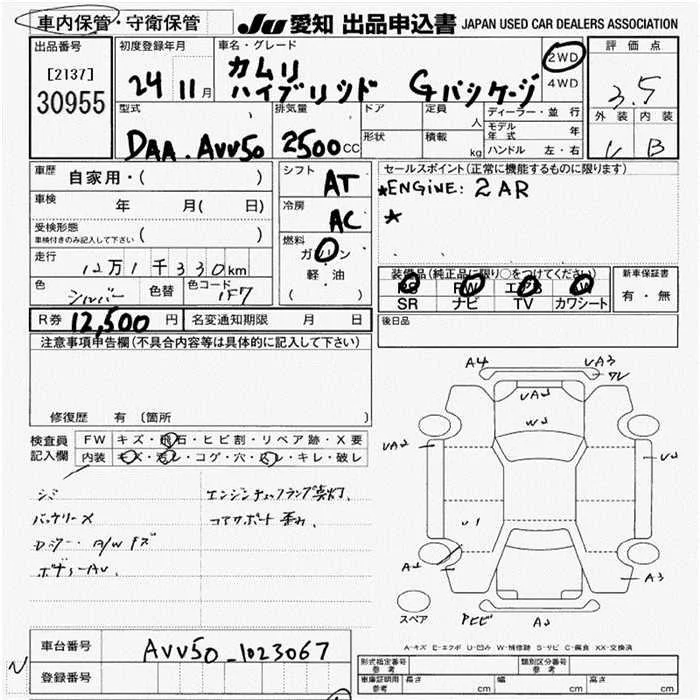 車内保管・守衛保管 JU 愛知 出品申込書 JAPAN USED CAR DEALERS ASSOCIATION
出品番号 初度登録年月 車名・グレード 2WD 評価点
[2137] 24 11月 カムリ 4WD 3.5
30955 ハイブリッド Gパッケージ
外装 内装
型式 排気量 ドア 定員 人 ディーラー・並行
モデル年式 年 B
DAA.AVV50 2500CC 形状 積載 kg ハンドル 左・右
車歴 自家用・( ) シフト AT セールスポイント(正常に機能するものに限ります)
*ENGINE: 2AR
車検 年 月( 日) 冷房 AC *
受検形態 ( )
車検付きのみ記入して下さい
燃料 ガソリン
走行 12万1千330km 軽・油 装備品(純正品に限り○をつけてください) 新車保証書
PS PW エアB AW
色 シルバー 色替 色コード 1F7 ( ) SR ナビ TV カワシート 有・無
R券 12,500円 名変通知期限 月 日 後日品
注意事項申告欄(不具合内容等は具体的に記入して下さい)
A4 UA3
ワレ
UA2
W2
修復歴 有(箇所 )
検査員 FW キズ・飛石・ヒビ割・リペア跡・X要
記入欄 内装 キズ・汚レ・コゲ・穴・スレ・キレ・破レ
UA2 U2
シミ エンジンチェックランプ点灯.
バッテリーX コアサポート歪み.
U1
A/W キズ
ボデーAU.
A2 A3
スペア A2
A-キズ E-エクボ U-凹み W-補修跡 S-サビ C-腐食 XX-交換済
車台番号 AVV50-1023067
登録番号
型式指定番号 参考 類別区分番号 参考
車庫証明用 参考 長さ cm 幅 cm 高さ cm
N